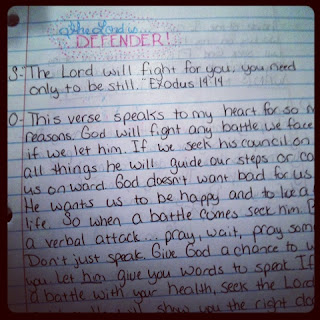 The Lord is...
DEFENDER!
S- "The Lord will fight for you, you need
only to be still." Exodus 14:14
O- This verse speaks to my heart for so
reasons. God will fight any battle we face
if we let him. If we seek his council on
all things he will guide our steps or
us onward. God doesn't want bad for us
He wants us to be happy and to live a
life. So when a battle comes seek him.
a verbal attack... pray, wait, pray
Don't just speak. Give God a chance to
you. Let him give you words to speak. If
a battle with your health, seek the Lord
show you the right